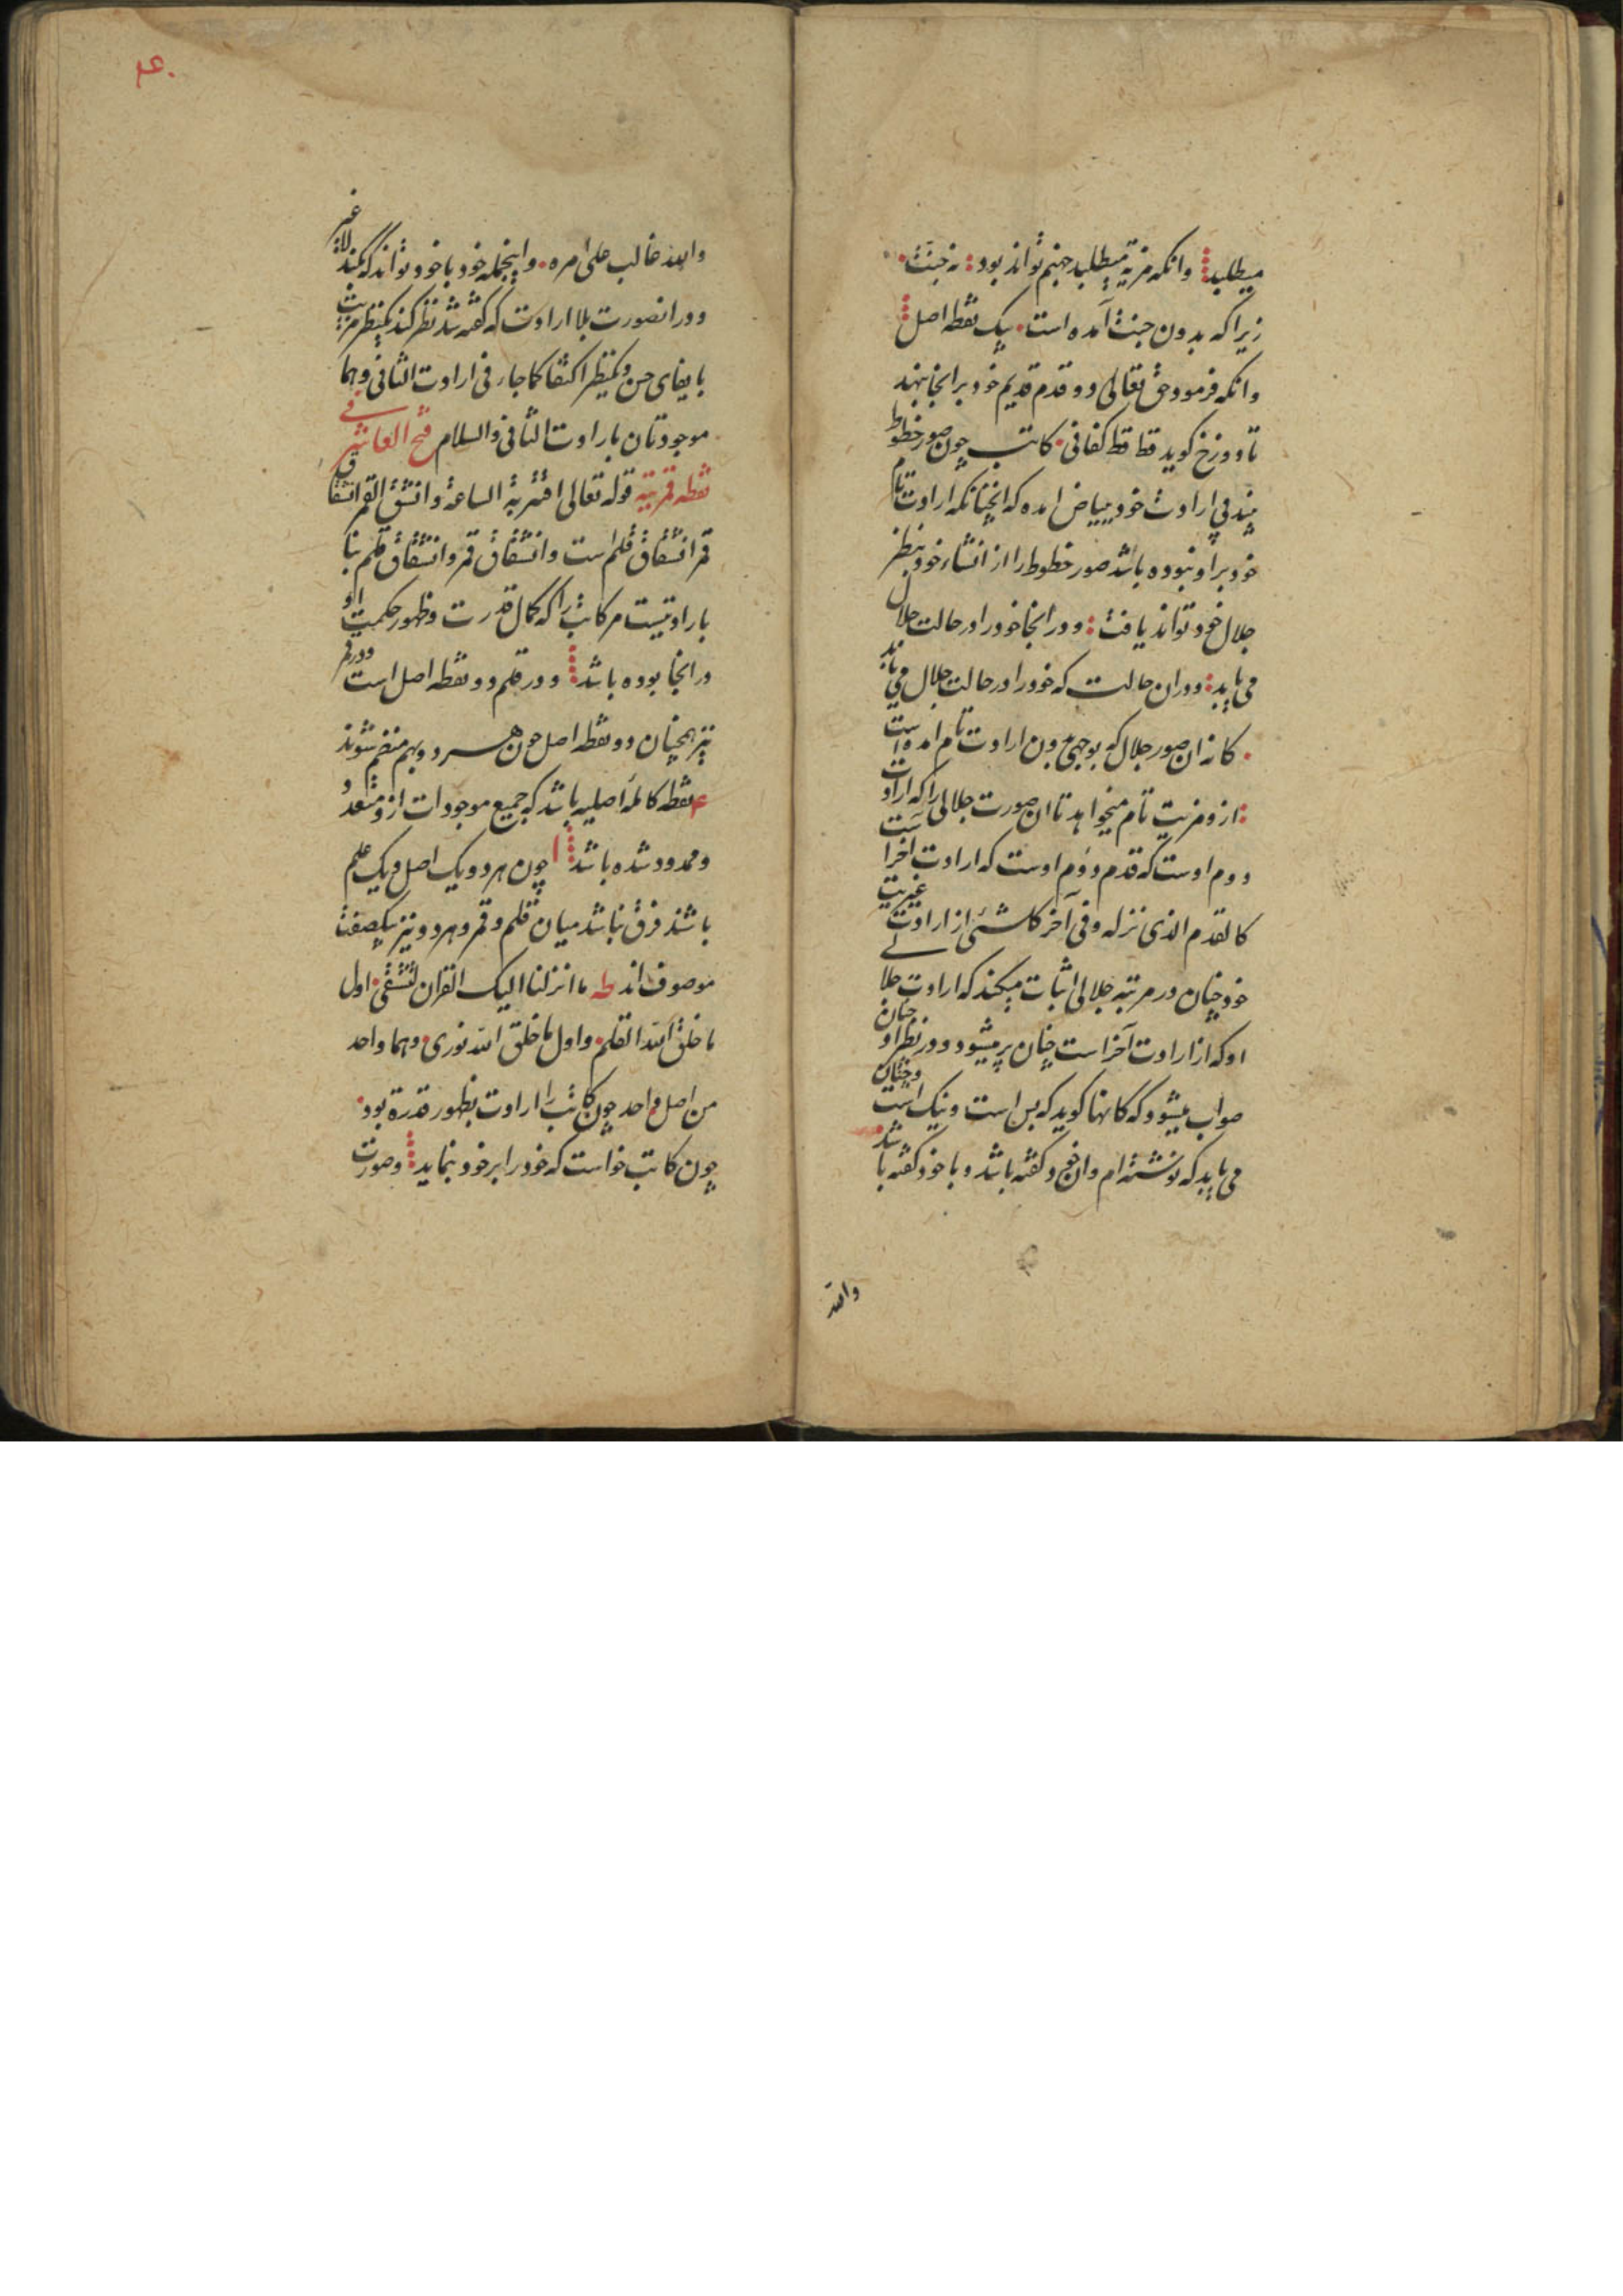 میطلبد وانکه مزیة میطلبد جهنم تواند بود نه جنت
زیرا که بدون جنت آمده است یک نقطه اصل
وانکه فرمود حق تعالی دو قدم قدیم خود بر انجا نهند
تا دوزخ کوید قط قط کفانی کاتب چون صور خطوط
بیند فی ارادت خود ببیاض امده که انچنانکه ارادت تام
خود بر او نبوده باشد صور خطوط را از انشاء خود بنظر
جلال خود تواند یافت ودر انجا خود را در حالت جلال
می یابد ودران حالت که خود را در حالت جلال می یابد
کانه ان صور جلال که بوجهی بدون ارادت تام امده است
از و مزیت تام میخواهد تا ان صورت جلالی را که ارادت
دوم اوست که قدم دوم اوست که ارادت اخر است
کالقدم الذی نزله وفی آخر کاشئ از ارادت غیریت
خود چنان در مرتبه جلالی اثبات میکند که ارادت جلالی
او که از ارادت آخر است چنان پر میشود ودر نظر او چنان
صواب میشود که کانها کوید که بس است ونیک است وچنان
می یابد که نوشته ام وان خود کفته باشد وبا خود کفته باشد
والله
عد.
والله غالب علی امره واینجمله خود با خود تواند که کند لا غیر
ودر انصورت بلا ارادت که کفته شد نظر کند بنظر مزیت
بایفای حسن وبنظر اکتفا کما جاء فی ارادت الثانی وهما
موجودتان بارادت الثانی والسلام فتح العاشر فی
نقطه قمریته قوله تعالی اقتربة الساعة وانشق القمر انشقاق
قمر انشقاق قلم است وانشقاق قمر وانشقاق قلم بنا
بارادتیست مر کاتب را که کمال قدرت وظهور حکمت او
در انجا بوده باشد ودر قلم دو نقطه اصل است ودر قمر
نیز همچنان دو نقطه اصل چون هر دو بهم منضم شوند
نقطه کامله اصلیه باشد که جمیع موجودات ازو متعدد
وممدود شده باشد چون هر دو یک اصل ویک علم
باشند فرق نباشد میان قلم وقمر وهر دو نیز بیکصفت
موصوف اند طه ما انزلنا الیک القران لتشقی اول
ما خلق الله القلم واول ما خلق الله نوری وهما واحد
من اصل واحد چون کاتب را ارادت بظهور قدرة بود
چون کاتب خواست که خود را بر خود بنماید وصورت